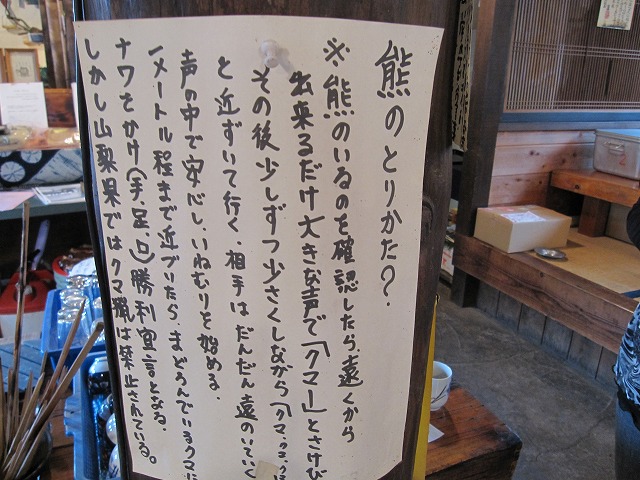 熊のとりかた?
※熊のいるのを確認したら、遠くから
出来るだけ大きな声で「クマー」とさけび
その後少しずつ少さくしながら「クマ、クマ、ク
と近ずいて行く、相手はだんだん遠のいていく
声の中で安心し、いねむりを始める、
一メートル程まで近づいたら、まどろんでいるクマに
ナワをかけ(手、足、口)勝利宣言となる、
しかし山梨県ではクマ猟は禁止されている。